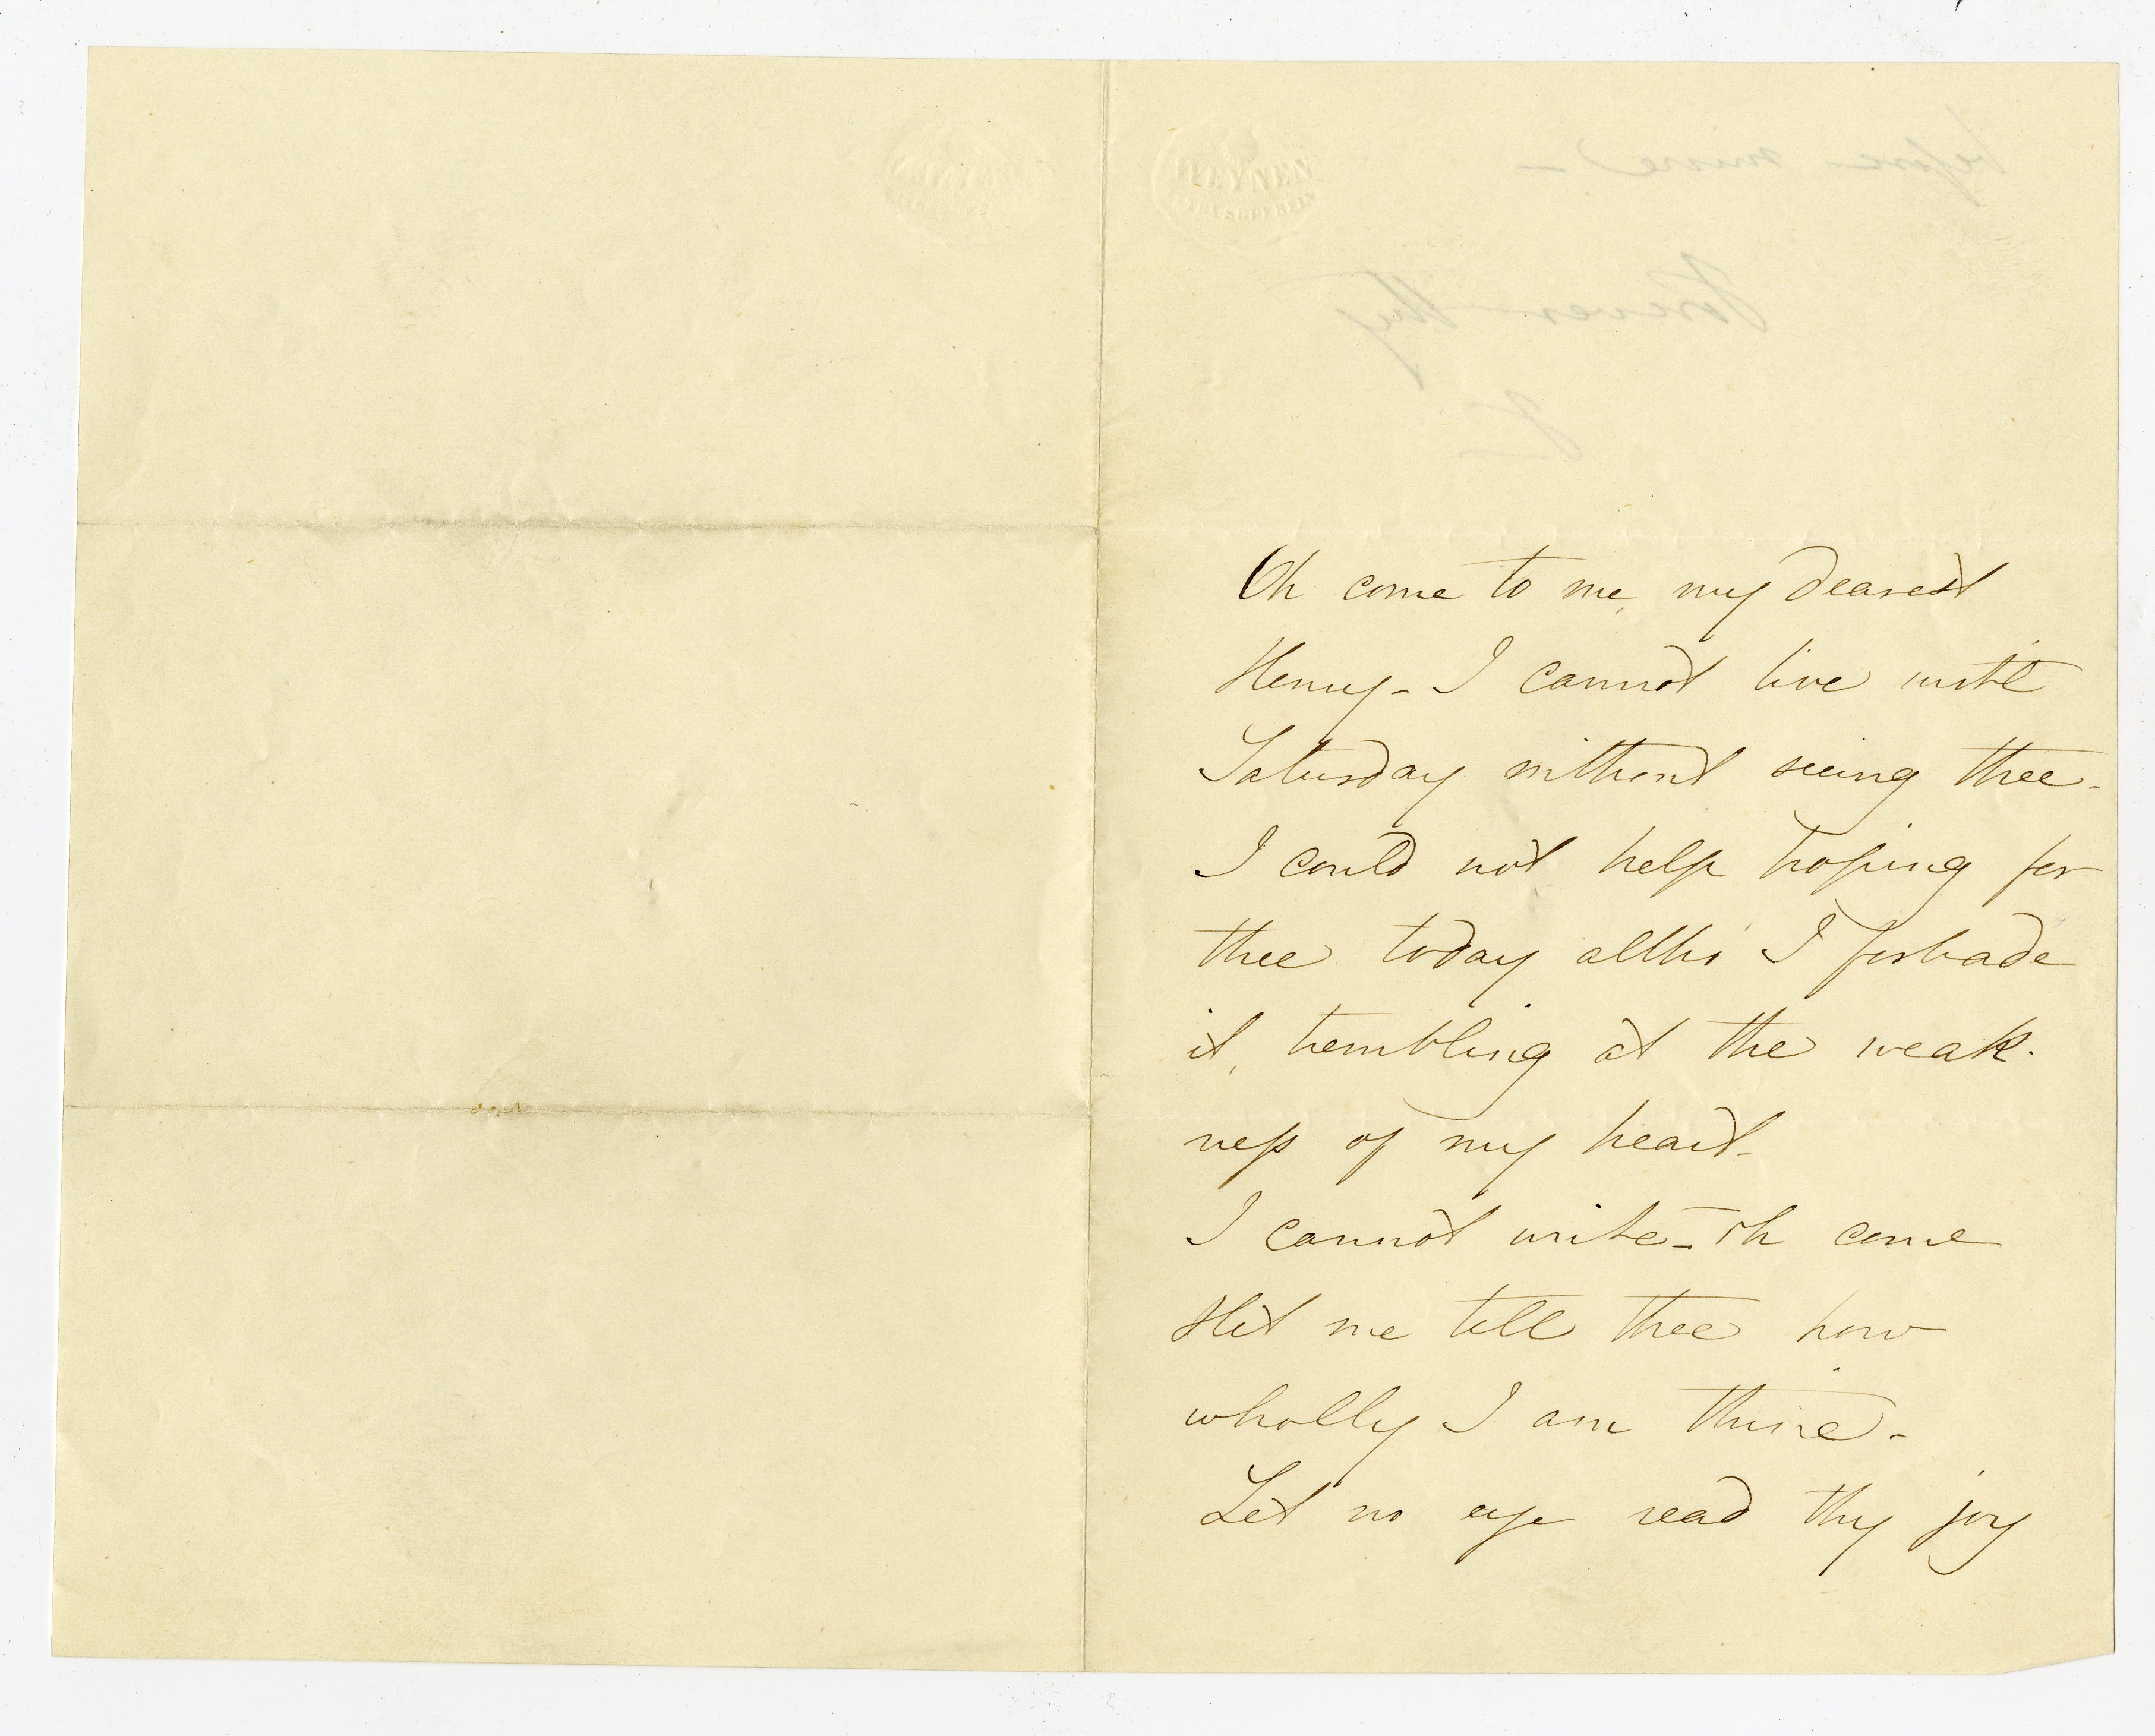 before mine –
Forever thy
F
WEYNEN
Oh come to me, my dearest
Henry – I cannot live until
Saturday without seeing thee –
I could not help hoping for
thee today altho' I forbade
it, trembling at the weak-
ness of my heart –
I cannot write – oh come
& let me tell thee how
wholly I am thine –
Let no eye read thy joy